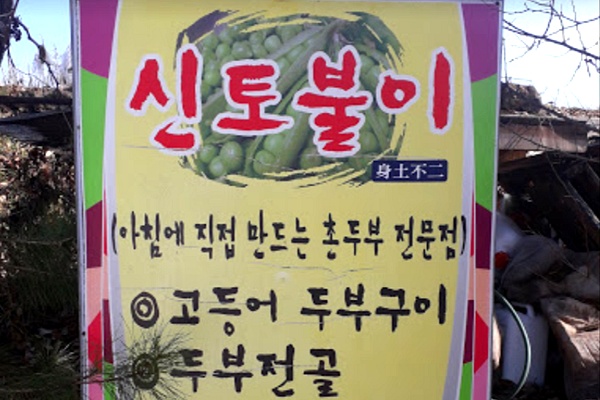 신토불이
身土不二
(아침에 직접 만드는 촌두부 전문점)
◎ 고등어 두부구이
◎ 두부전골